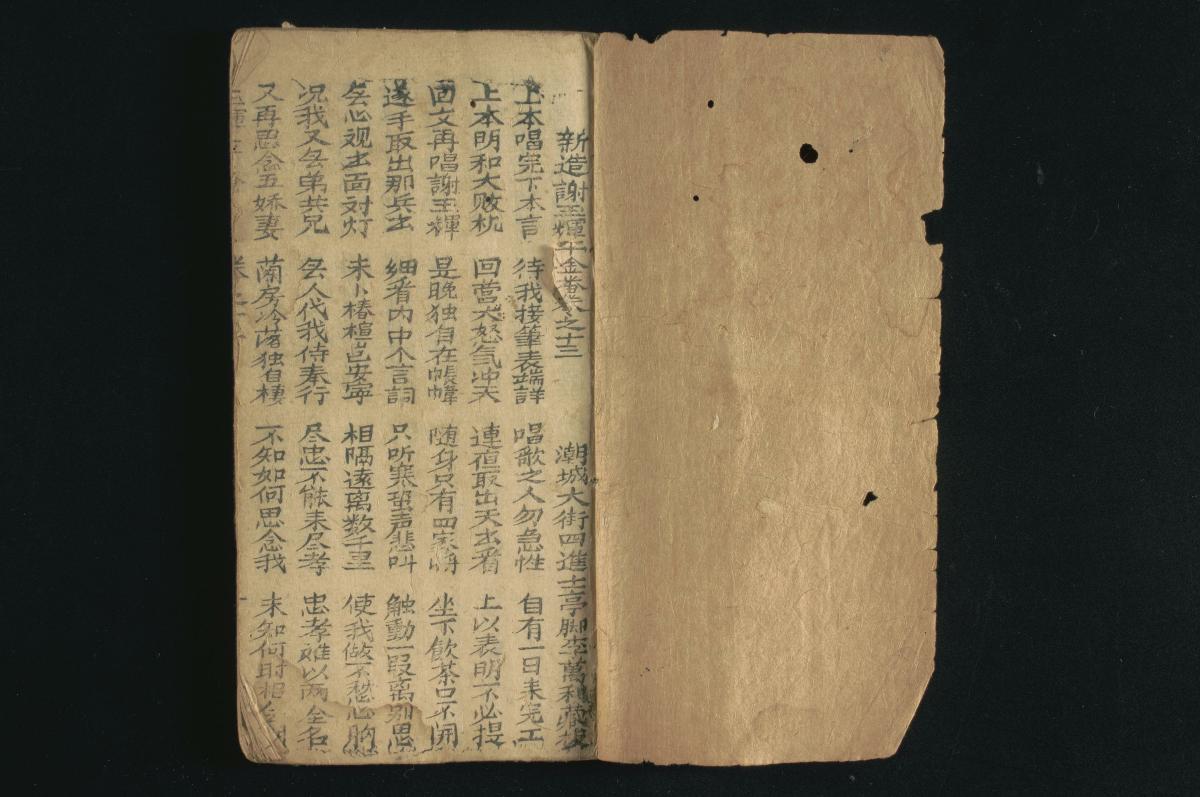 新造謝玉輝平金番卷之十三 潮城大街四進士亭脚李萬利藏板
上本唱完下本言 待我接筆表端詳 唱歌之人勿急性 自有一日未完工
上本明和大败机 回营大怒气冲天 連夜取出天出看 上以表明不必提
回文再唱謝玉輝 是晚独自在帳幃 随身只有四家将 坐下飲茶口不開
遂手取出那兵出 细看内中个言詞 只听寒蛩声悲叫 触動一段离别思
無心观出面对灯 未卜椿楦岂安寧 相隔遠离数千里 使我做不愁心胸
况我又無弟共兄 無人代我侍奉行 尽忠不能未尽孝 忠孝难以两全名
又再思念五娇妻 蘭房冷落独自棲 不知如何思念我 未知何时相